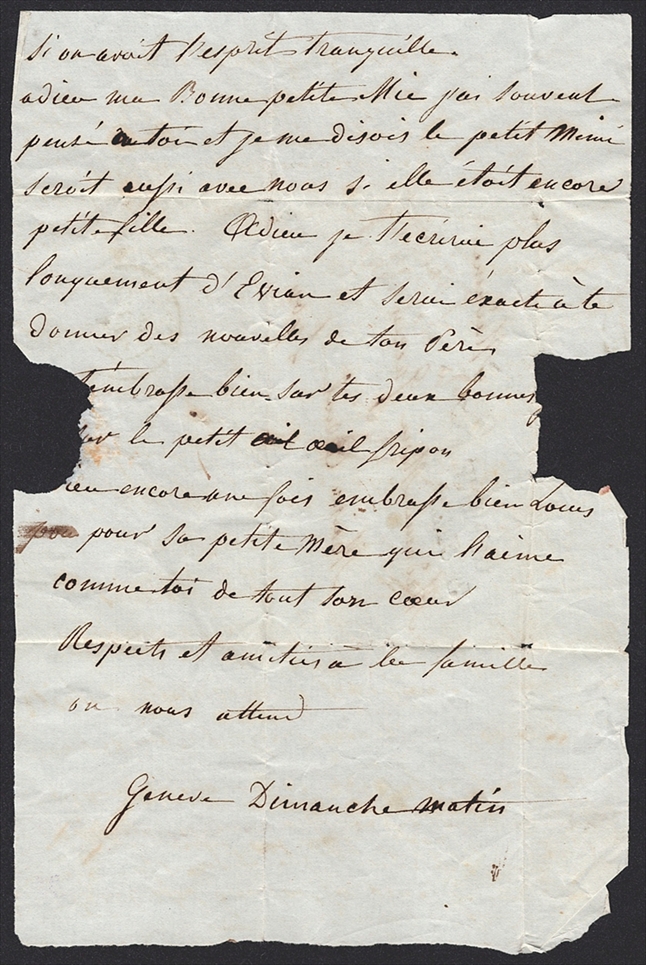 si on avoit l'esprit tranquille.
adieu ma Bonne petite Mie j'ai souvent
pensé a toi et je me disois le petit Mimi
seroit aussi avec nous si elle étoit encore
petite fille. Adieu je t'écrirai plus
longuement d'Evian et serai éxacte à te
donner des nouvelles de ton Père
t'embrasse bien sur tes deux bonnes
sur le petit œil fripon
ieu encore une fois embrasse bien Louis
pour sa petite Mère qui l'aime
comme toi de tout son cœur
Respects et amitiés à la famille
on nous attend
Geneve Dimanche matin